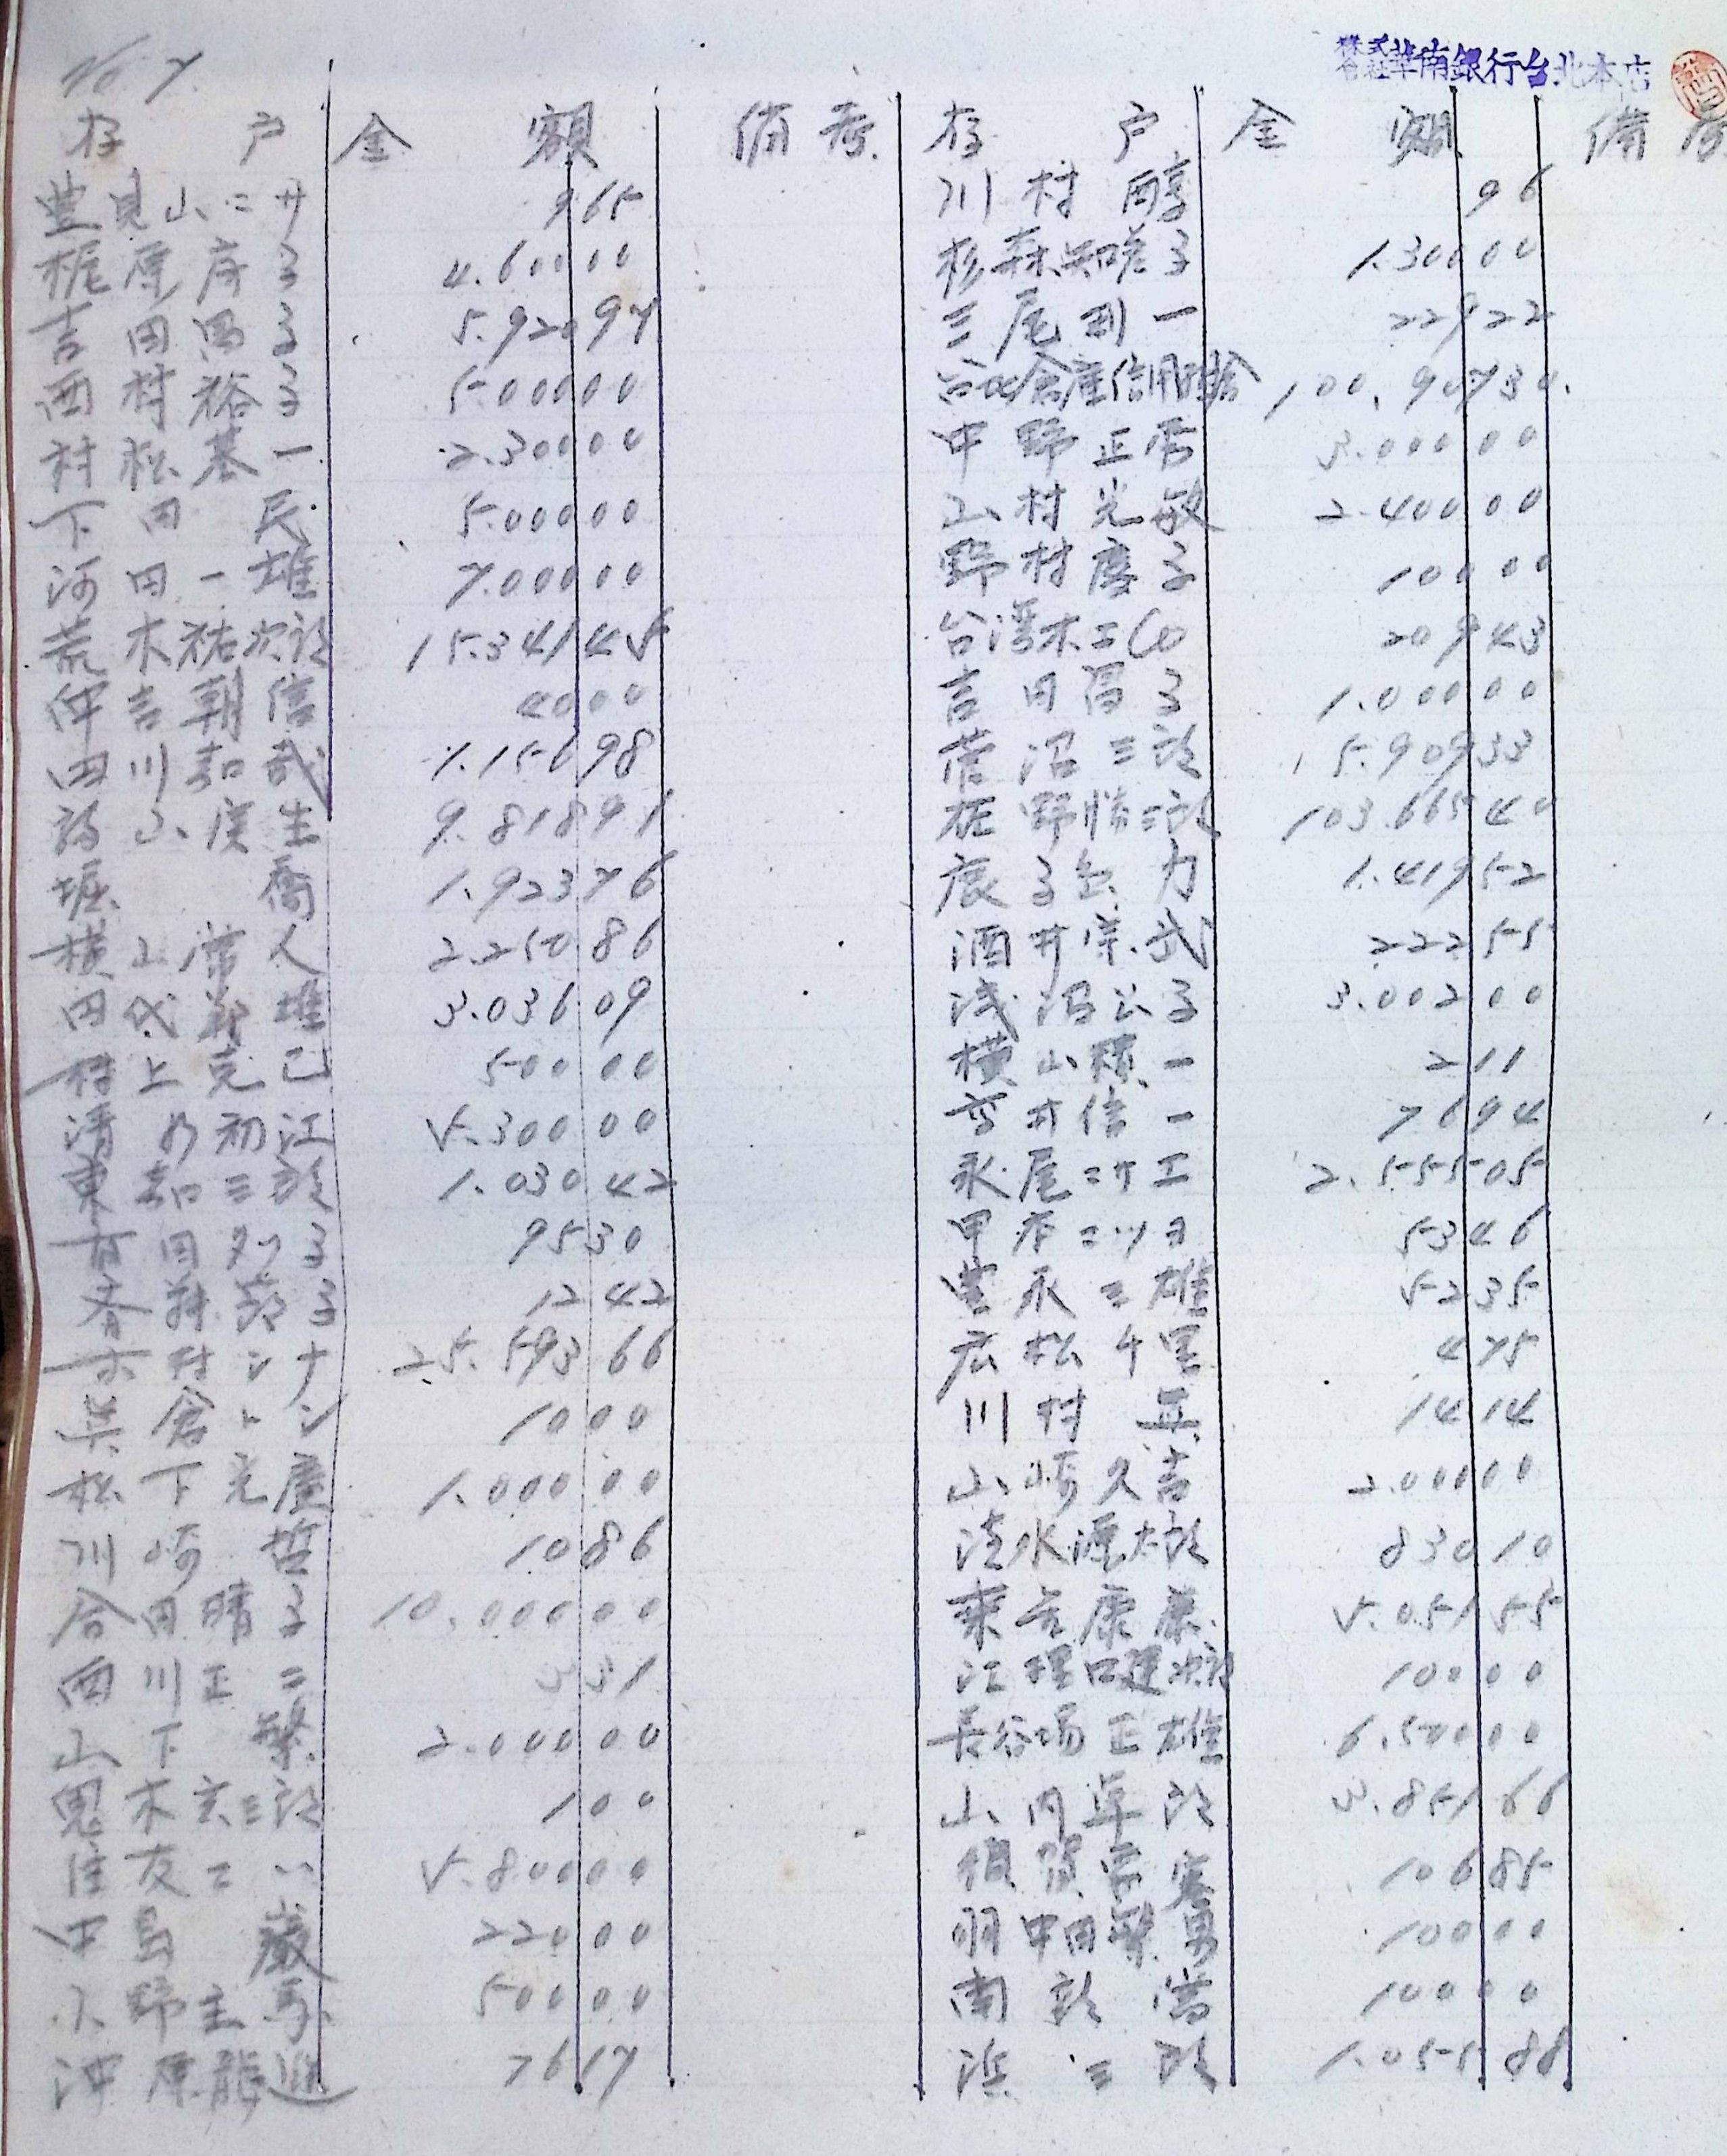 No 7.
株式会社華南銀行台北本店
存 户 金 額 備考 存 户 金 額 備考
豊見山ニサ 9 65 川村 醇 96
梶原房子 4.600 00 杉森知恵子 1.300 00
吉田馬子 5.920 97 三尾利一 229 22
西村裕子 5 000 00 台北倉庫信用組合 100.907 30
村松基一 2.300 00 中野正 3.000 00
下田 民 5.000 00 山村光敏 2.400 00
河田一雄 7.000 00 野村慶子 100 00
荒木祐次郎 15.341 45 台湾木工Co 209 43
仲吉朝信 40 00 吉田冨子 1.000 00
田川嘉哉 1.156 98 菅沼三郎 15.909 33
山 生 9.818 91 野勝三郎 103.665 40
堀 喬 1.923 76 鹿子 力 1.419 52
横山常人 2.250 86 酒井宗武 222 55
田代 雄 3.036 09 浅沼公子 3.002 00
村上克己 500 00 横山 一 2 11
清水初江 5.300 00 井信一 76 94
東嘉三郎 1.030 42 永尾ニサエ 2.555 05
田 子 95 30 甲 ニツヨ 53 46
斉藤節子 12 42 豊永三雄 52 35
村シナ 25.593 66 広松千里 4 75
倉トシ 10 00 川村 14 14
松下光廣 1.000 00 山崎久吉 2.000 00
川崎 哲 10 86 清水源太郎 830 10
合田晴子 10.000 00 康 5.051 55
西川正二 3 31 江理口建次郎 100 00
山下 繁 2.000 00 長谷場正雄 6.500 00
鬼木 三郎 1 00 山内草郎 3.851 66
住友ニハ 5.800 00 賀 106 85
中島 巌 220 00 羽中田繁男 100 00
小野主馬 500 00 南 郎 100 00
沖原龍進 76 17 浜 三郎 1.055 88